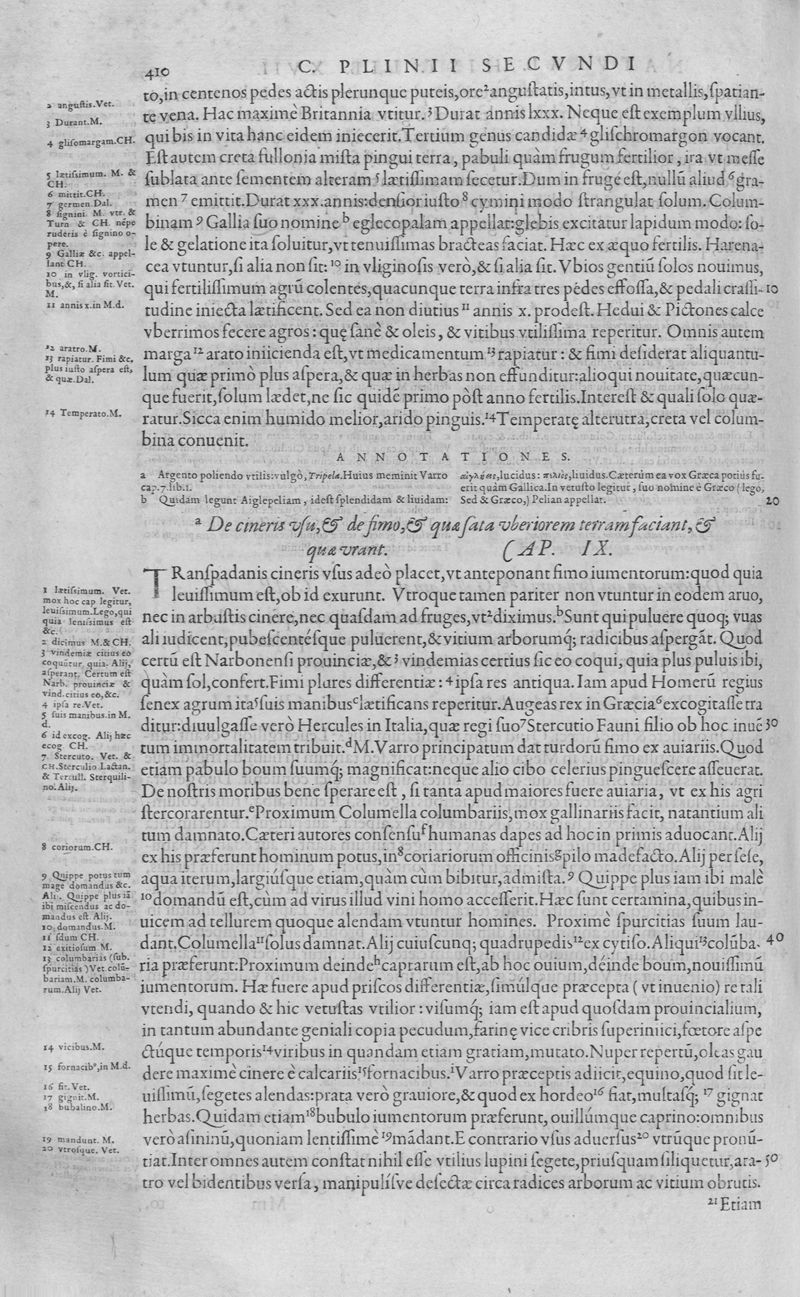 410
C. PLINII SECVNDI
to,in centenos pedes actis plerunque puteis,ore²angustatis,intus,vt in metallis,spatian-
te vena. Hac maximè Britannia vtitur.³Durat annis lxxx. Neque est exemplum vllius,
qui bis in vita hanc eidem iniecerit.Tertium genus candidæ ⁴glischromargon vocant.
Est autem creta fullonia mista pingui terra, pabuli quàm frugum fertilior, ira vt messe
sublata ante sementem alteram ⁵lætissimam secetur.Dum in fruge est,nullũ aliud ⁶gra-
men ⁷emittit.Durat xxx.annis:densior iusto ⁸cymini modo strangulat solum. Colum-
binam ⁹Gallia suo nomine ᵇeglecopalam appellat:glebis excitatur lapidum modo: so-
le & gelatione ita soluitur,vt tenuissimas bracteas faciat. Hæc ex æquo fertilis. Harena-
cea vtuntur,si alia non sit:¹⁰in vliginosis verò,& si alia sit.Vbios gentiũ solos nouimus,
qui fertilissimum agrũ colentes,quacunque terra infra tres pèdes effossa,& pedali crassi-10
tudine iniecta lætificent. Sed ea non diutius ¹¹annis x. prodest. Hedui & Pictones calce
vberrimos fecere agros:quę sanè & oleis, & vitibus vtilissima reperitur. Omnis autem
marga¹²arato iniicienda est,vt medicamentum¹³rapiatur: & fimi desiderat aliquantu-
lum quæ primò plus aspera,& quæ in herbas non effunditur:alioqui nouitate,quæcun-
que fuerit,solum lædet,ne sic quidé primo pòst anno fertilis.Interest & quali solo quæ-
ratur.Sicca enim humido melior,arido pinguis.¹⁴Temperatę alterutra,creta vel colum-
bina conuenit.
2 angustis.Vet.
3 Durant.M.
4 glisomargam.CH.
5 lætissimum. M. &
CH.
6 mittit.CH.
7 germen.Dal.
8 signini M. vtr. &
Turn & CH. népe
ruderis è signino o-
pere.
9 Galliæ &c. appel-
lant CH.
10 in vlig. vortici-
bus,&, si alia sit. Vet.
M.
11 annis x.in M.d.
12 aratro.M.
13 rapiatur. Fimi &c.
plus iusto aspera est,
& quæ.Dal.
14 Temperato.M.
ANNOTATIONES.
a Argento poliendo vtilis:vulgò, Tripela.Huius meminit Varro
cap.7.lib.1.
b Quidam legunt Aiglepeliam, idest splendidam & liuidam:
αἰγλήεις,lucidus: πελιὸς,liuidus.Cæterùm ea vox Græca potiùs fu-
erit quàm Gallica.In vetusto legitur, suo nomine è Græco (lego,
Sed & Græco,) Pelian appellat. 20
ᵃ De cineris vsu,& de fimo,& quæ sata vberiorem terram faciant,&
quæ vrant. CAP. IX.
TRanspadanis cineris vsus adeò placet,vt anteponant fimo iumentorum:quod quia
¹leuissimum est,ob id exurunt. Vtroque tamen pariter non vtuntur in eodem aruo,
nec in arbustis cinere,nec quasdam ad fruges,vt²diximus.ᵇSunt qui puluere quoq; vuas
ali iudicent,pubescentésque puluerent,& vitium arborumq́; radicibus aspergãt. Quod
certũ est Narbonensi prouinciæ,&³vindemias certius sic eo coqui, quia plus puluis ibi,
quàm sol,confert.Fimi plures differentiæ:⁴ipsa res antiqua. Iam apud Homerũ regius
senex agrum ita⁵suis manibusᶜlætificans reperitur.Augeas rex in Græcia⁶excogitasse tra
ditur:diuulgasse verò Hercules in Italia,quæ regi suo⁷Stercutio Fauni filio ob hoc inué 30
tum immortalitatem tribuit.ᵈM.Varro principatum dat turdorũ fimo ex auiariis.Quod
etiam pabulo boum suumq́; magnificat:neque alio cibo celerius pinguescere asseuerat.
De nostris moribus bene sperare est, si tanta apud maiores fuere auiaria, vt ex his agri
stercorarentur.ᵉProximum Columella columbariis,mox gallinariis facit, natantium ali
tum damnato.Cæteri autores consensuᶠhumanas dapes ad hoc in primis aduocant.Alij
ex his præferunt hominum potus,in⁸coriariorum officinisᵍpilo madefacto.Alij per sese,
aqua iterum,largiúsque etiam,quàm cùm bibitur,admista.⁹Quippe plus iam ibi malè
¹⁰domandũ est,cùm ad virus illud vini homo accesserit.Hæc sunt certamina,quibus in-
uicem ad tellurem quoque alendam vtuntur homines. Proximè spurcitias suum lau-
dant.Columella¹¹solus damnat.Alij cuiuscunq; quadrupedis¹²ex cytiso.Aliqui¹³colũba- 40
ria præferunt:Proximum deindeʰcaprarum est,ab hoc ouium,déinde boum,nouissimũ
iumentorum. Hæ fuere apud priscos differentiæ,simúlque præcepta (vt inuenio) re tali
vtendi, quando & hic vetustas vtilior: visumq́; iam est apud quosdam prouincialium,
in tantum abundante geniali copia pecudum,farinę vice cribris superiniici,fœtore aspe
ctúque temporis¹⁴viribus in quandam etiam gratiam,mutato.Nuper repertũ,oleas gau
dere maximè cinere è calcariis¹⁵fornacibus.ⁱVarro præceptis adiicit,equino,quod sit le-
uissimũ,segetes alendas:prata verò grauiore,& quod ex hordeo¹⁶fiat,multasq́;¹⁷gignat
herbas.Quidam etiam¹⁸bubulo iumentorum præferunt, ouillúmque caprino:omnibus
verò asininũ,quoniam lentissimè¹⁹mãdant.E contrario vsus aduersus²⁰vtrũque pronũ-
tiat.Inter omnes autem constat nihil esse vtilius lupini segete,priusquam siliquetur,ara-50
tro vel bidentibus versa, manipulísve desectæ circa radices arborum ac vitium obrutis.
²¹Etiam
1 lætissimum. Vet.
mox hoc cap legitur,
leuissimum.Lego,qui
quia lenissimus est
&c.
2 dicimus M.& CH.
3 vindemiæ citius eo
coquũtur, quia. Alij,
asperant. Certum est
Narb. prouinciæ &
vind.citius eo,&c.
4 ipsa re.Vet.
5 suis manibus.in M.
d.
6 id excog. Alij hæc
ecog CH.
7 Stercuto. Vet. &
CH.Sterculio Lactan.
& Tertull. Sterquili-
no.Alij.
8 coriorum.CH.
9 Quippe potus tum
mage domandus &c.
Ali. Quippe plus iã
ibi miscendus ac do-
mandus est Alij.
10 domandus.M.
11 sdum CH.
12 exitiosum M.
13 columbarias (sub.
spurcitias) Vet colũ-
bariam.M. columba-
rum.Alij Vet.
14 vicibus.M.
15 fornacibᵒ,in M.d.
16 sit.Vet.
17 gignit.M.
18 bubalino.M.
19 mandunt. M.
20 vtrosque. Vet.